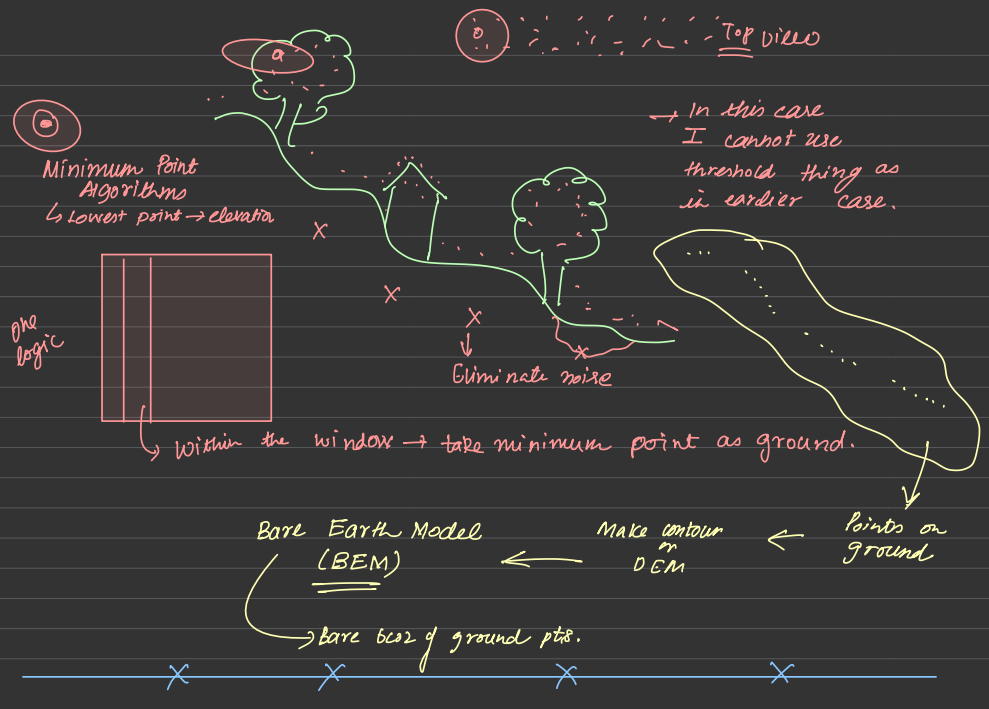 Top view
→ In this case
I cannot use
threshold thing as
in earlier case.
Minimum Point
Algorithms
↳ Lowest point → elevation
X
X
X
X
Eliminate noise
One
logic
Within the window → take minimum point as ground.
Points on
ground
Make contour
or
DEM
Bare Earth Model
(BEM)
Bare bcoz of ground pts.